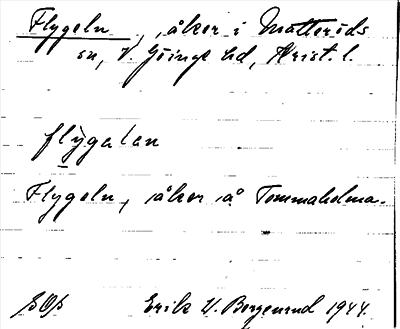 Flygeln, åker i Matteröds
sn, V. Göinge hd, Krist. l.
flygələn
Flygeln, åker å Tommaholma.
Erik W. Bergenrud 1944.